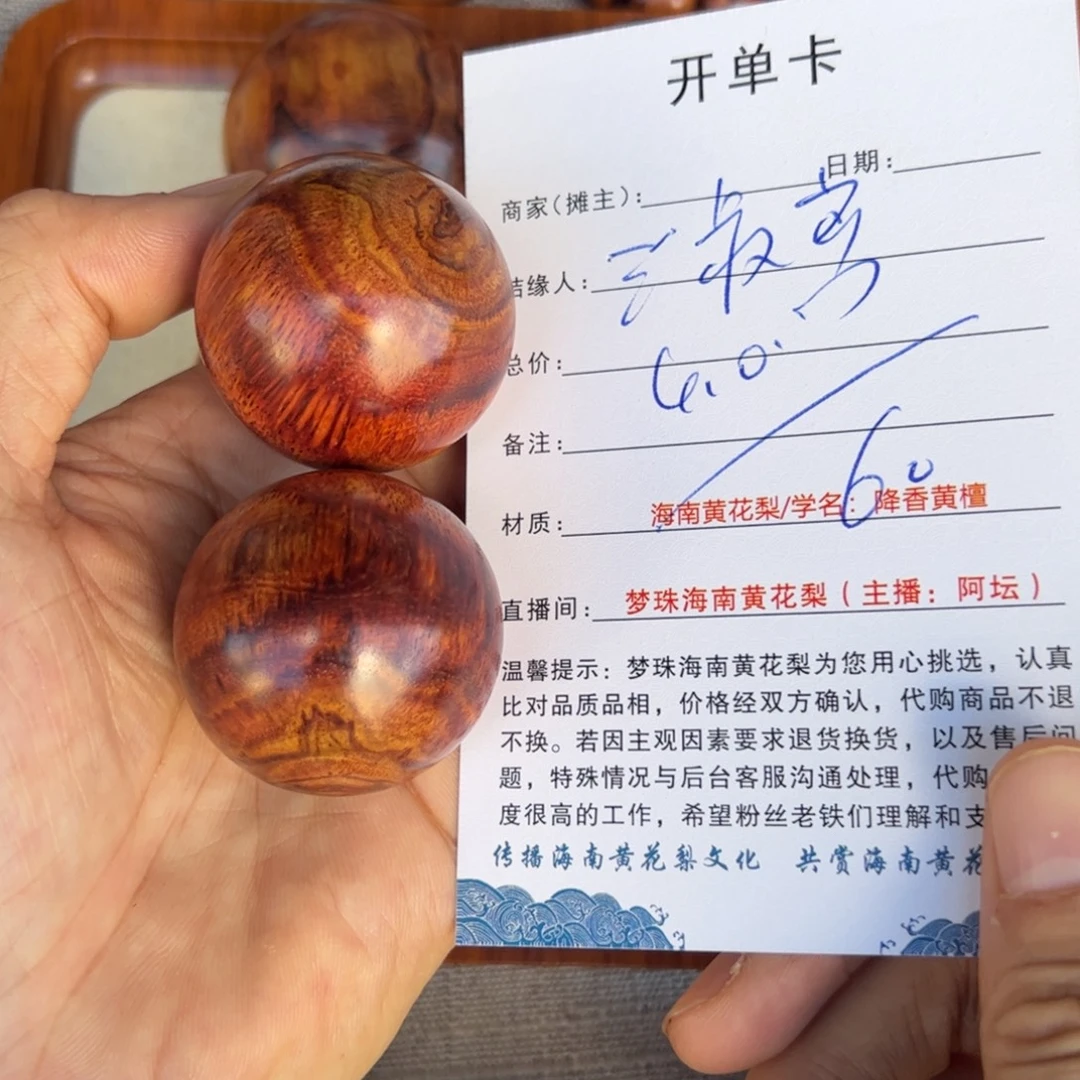 开单卡
商家（摊主）：
日期：
结缘人：
总价：
备注：
60
材质：海南黄花梨/学名：降香黄檀
直播间：梦珠海南黄花梨（主播：阿坛）
温馨提示：梦珠海南黄花梨为您用心挑选，认真
比对品质品相，价格经双方确认，代购商品不退
不换。若因主观因素要求退货换货，以及售后问
题，特殊情况与后台客服沟通处理，代购
度很高的工作，希望粉丝老铁们理解和支
传播海南黄花梨文化 共赏海南黄花